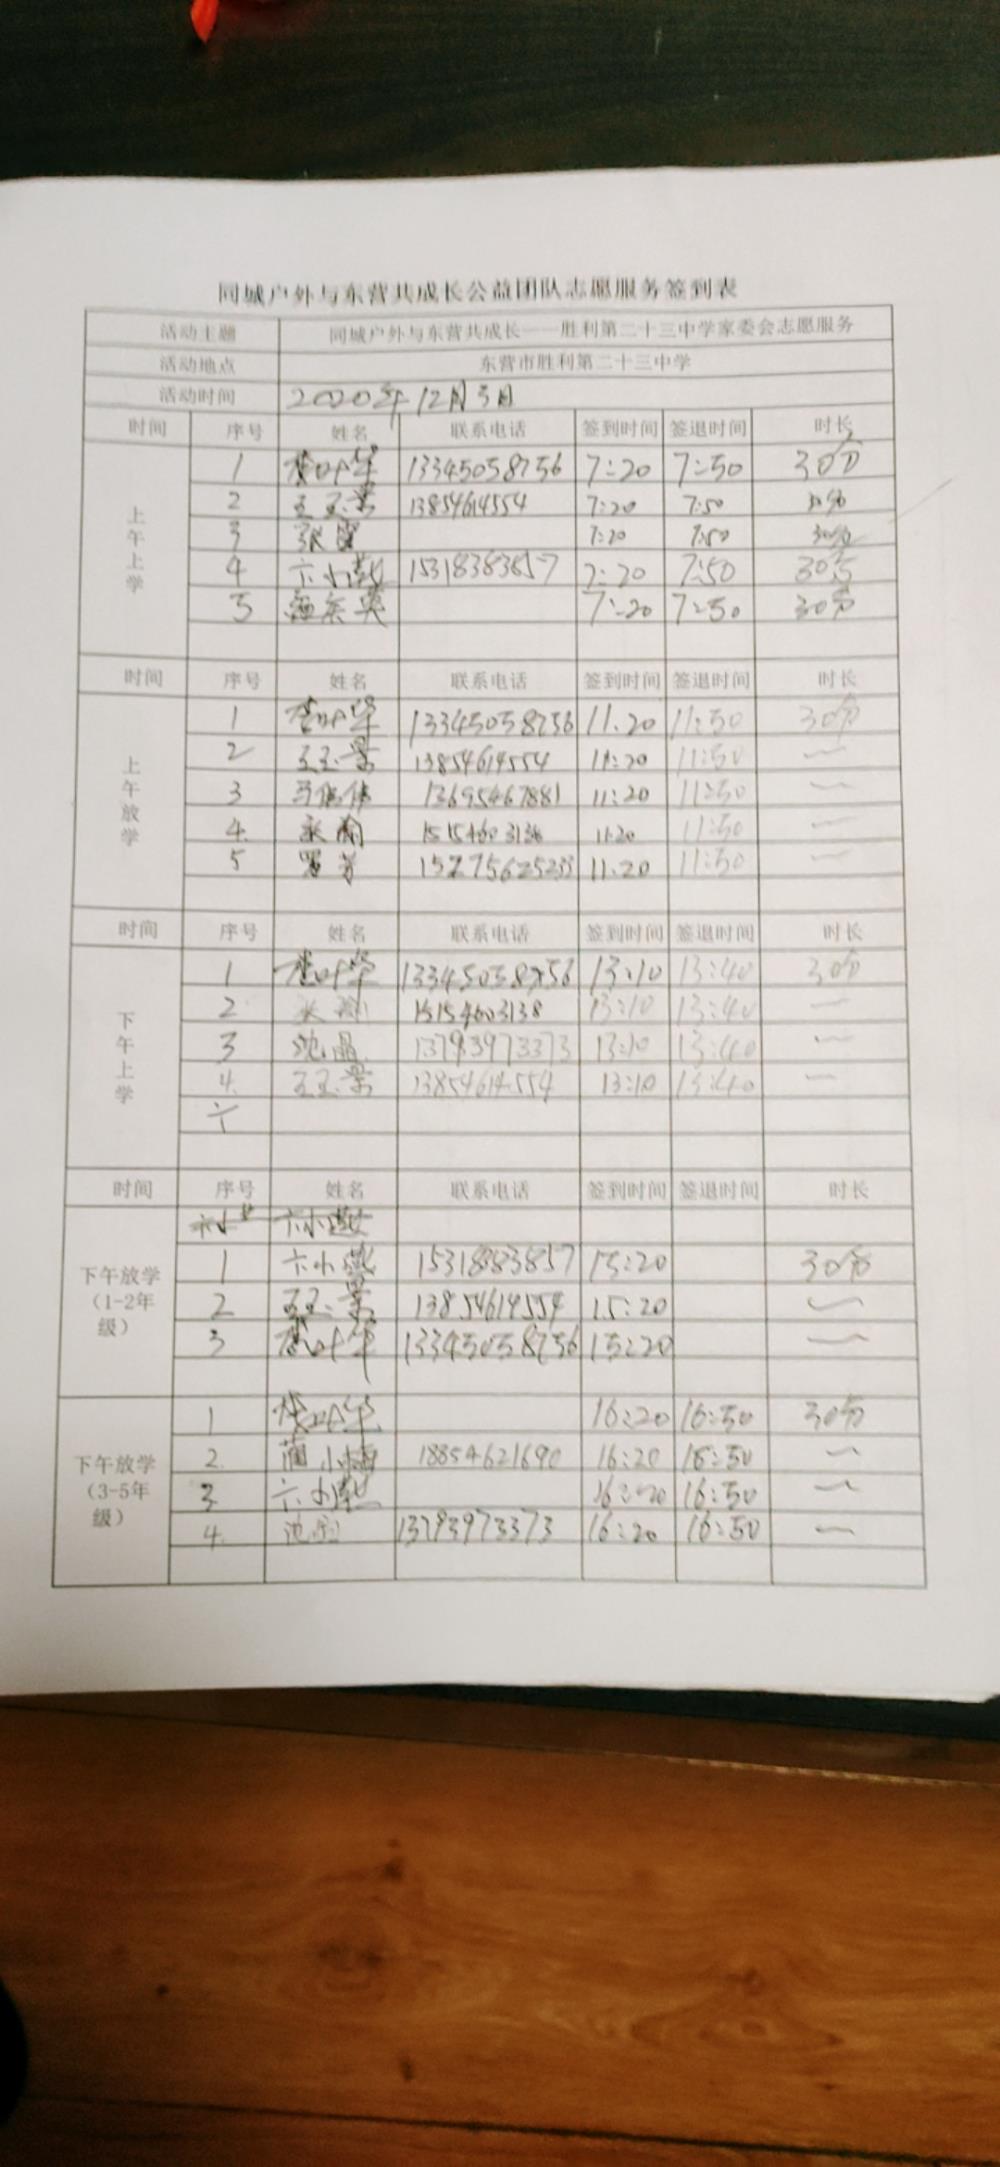 同城户外与东营共成长公益团队志愿服务签到表
活动主题 同城户外与东营共成长——胜利第二十三中学家委会志愿服务
活动地点 东营市胜利第二十三中学
活动时间 2020年12月3日
时间 序号 姓名 联系电话 签到时间 签退时间 时长
上午上学
1 13345058756 7:20 7:50 30分
2 王玉景 13854614554 7:20 7:50 30分
3 7:20 7:50 30分
4 15318383857 7:20 7:50 30分
5 7:20 7:50 30分
时间 序号 姓名 联系电话 签到时间 签退时间 时长
上午放学
1 13345058756 11:20 11:50 30分
2 王玉景 13854614554 11:20 11:50 —
3 13695467881 11:20 11:50 —
4. 15154603138 11:20 11:50 —
5 11:20 11:50 —
时间 序号 姓名 联系电话 签到时间 签退时间 时长
下午上学
1 13345058756 13:10 13:40 30分
2 15154603138 13:10 13:40 —
3 沈晶 13793973373 13:10 13:40 —
4. 王玉景 13854614554 13:10 13:40 —
时间 序号 姓名 联系电话 签到时间 签退时间 时长
下午放学（1-2年级）
1 卞小燕 15318383857 15:20 30分
2 王玉景 13854614554 15:20 —
3 13345058756 15:20 —
下午放学（3-5年级）
1 16:20 16:50 30分
2. 蒲小梅 18854621690 16:20 16:50 —
3. 16:20 16:50 —
4. 13793973373 16:20 16:50 —